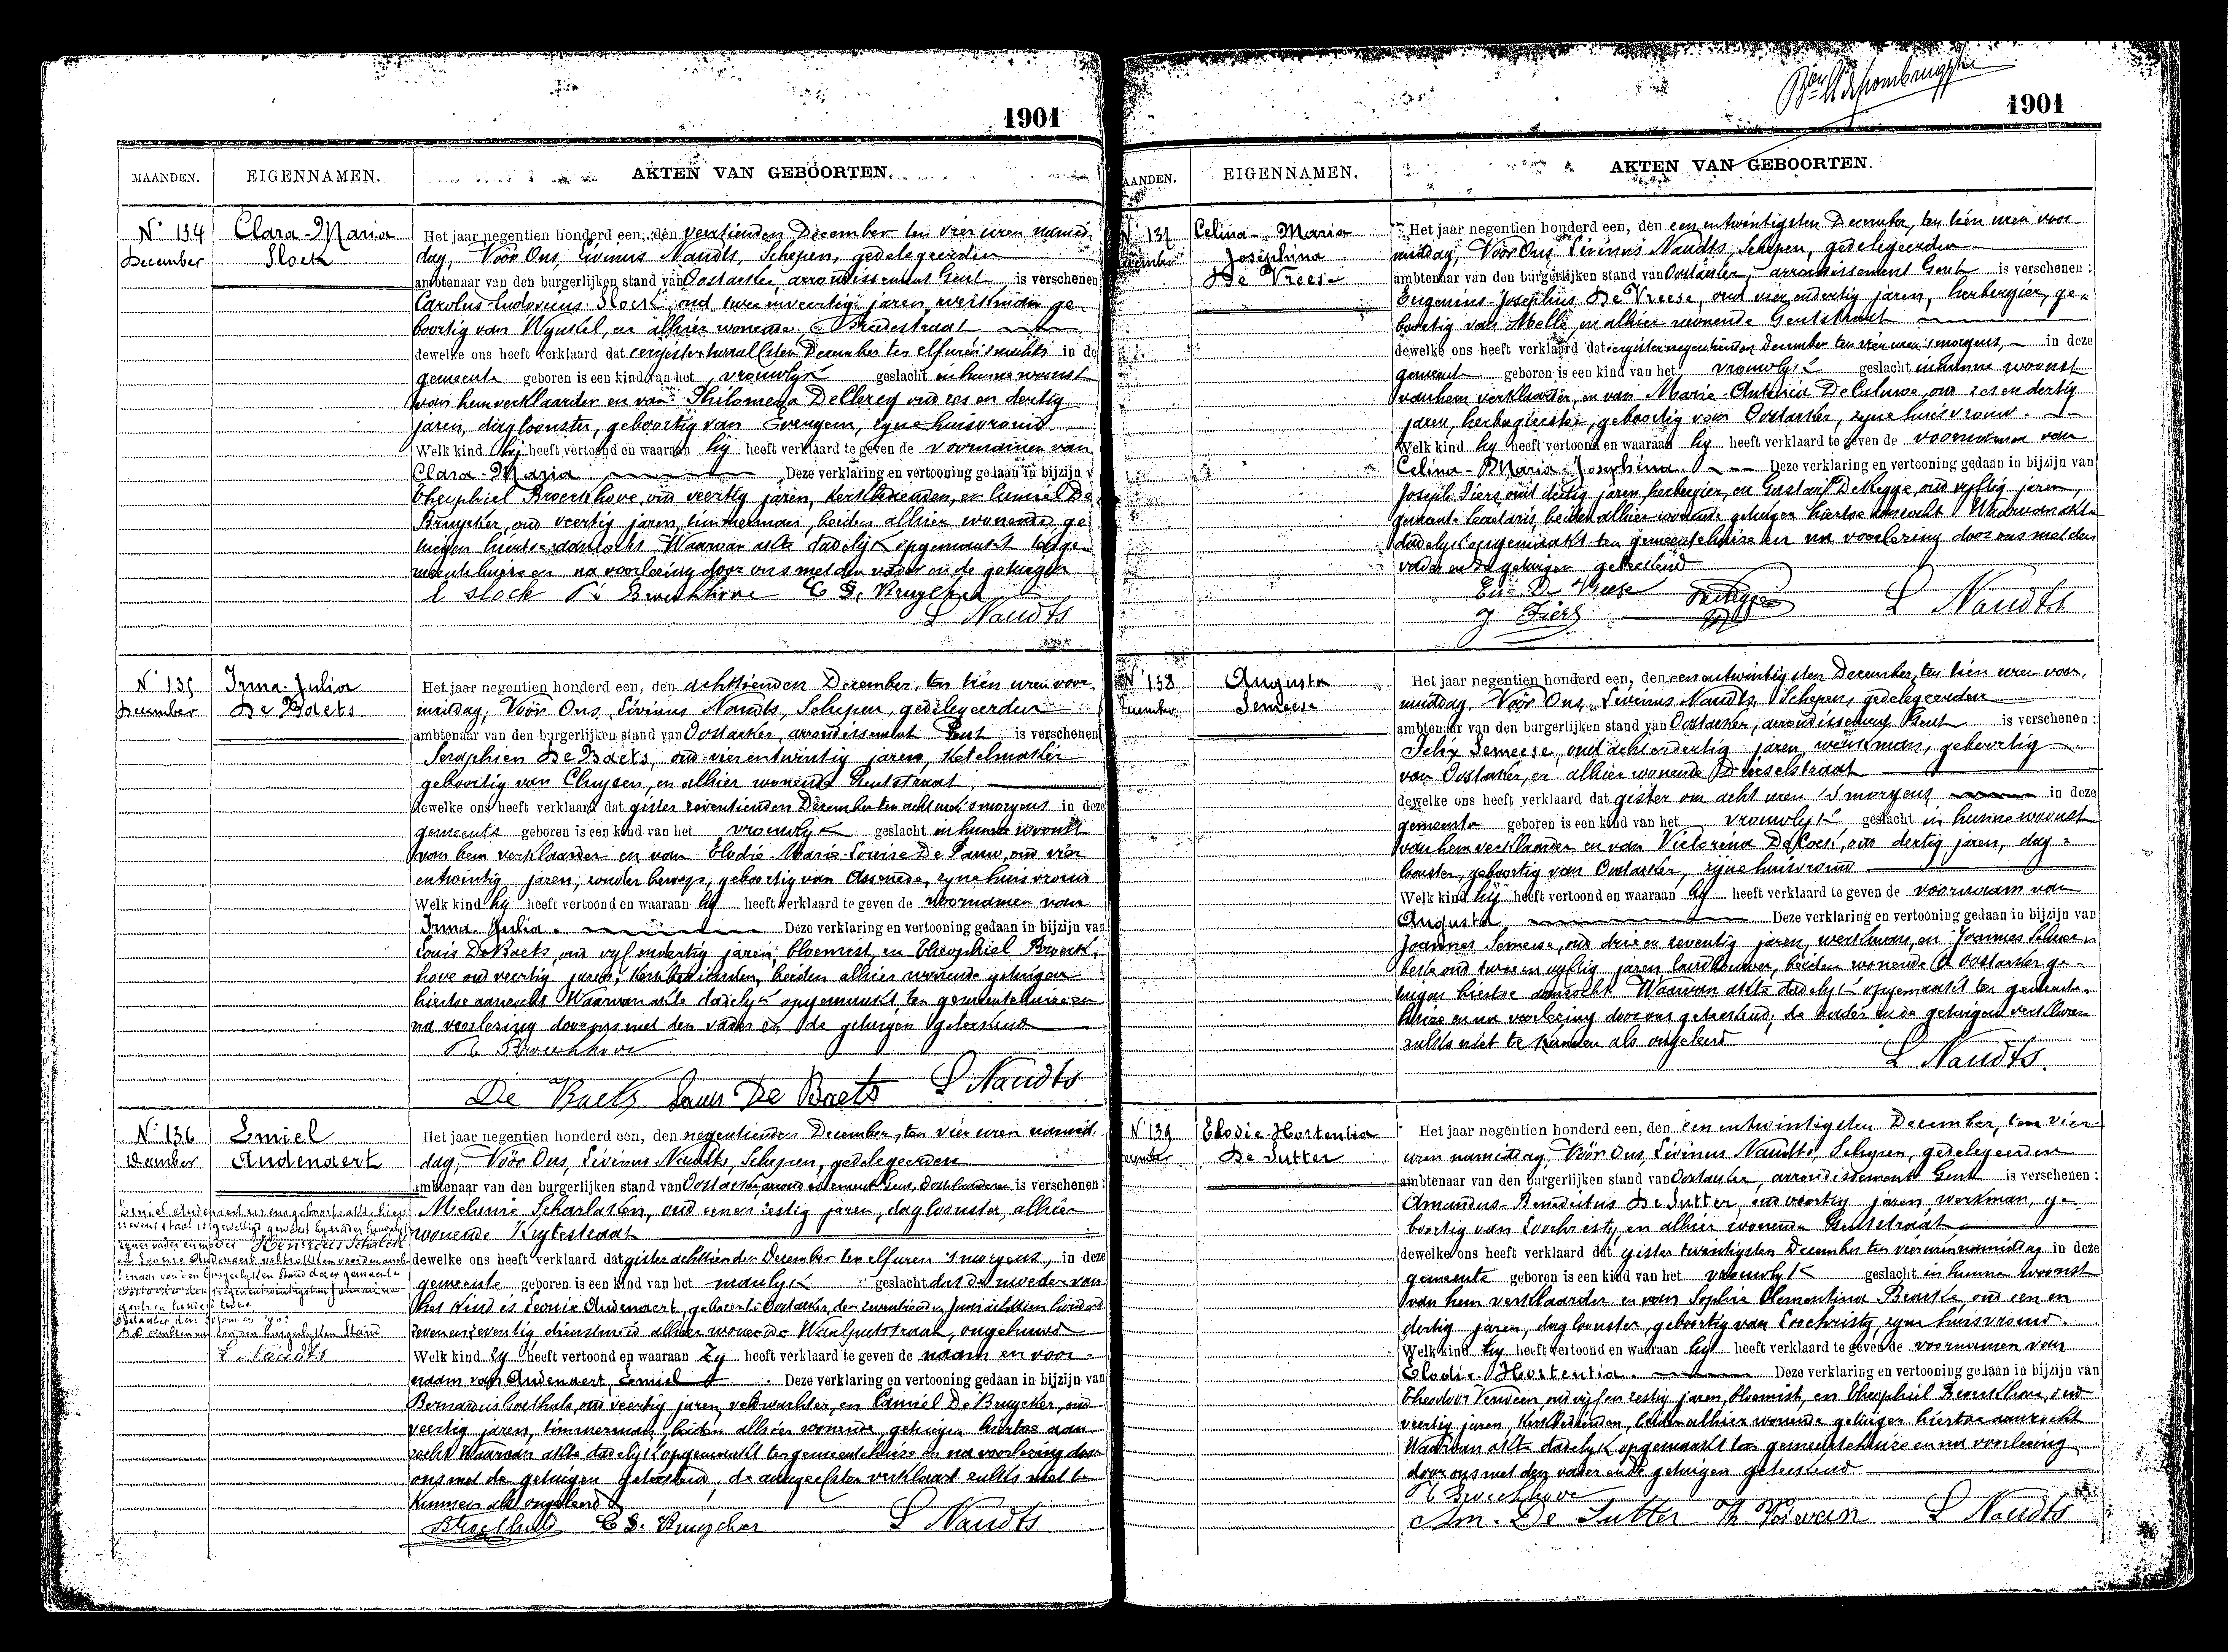 1901
MAANDEN. EIGENNAMEN. AKTEN VAN GEBOORTEN.
N° 134 Clara-Maria
December Slock
Het jaar negentien honderd een, den veertienden December ten vier uren namid-
dag, Vóór Ons, Livinus Naudts, Schepen, gedelegeerden
ambtenaar van den burgerlijken stand van Oostacker, arrondissement Gent is verschenen
Carolus-Ludovicus Slock, oud twee en veertig jaren, werkman ge-
boortig van Wynkel, en alhier wonende Breedestraat
dewelke ons heeft verklaard dat eergisteren twaalfsten December ten elf uren 's nachts in de
gemeente geboren is een kind van het vrouwlyk geslacht in hunne woonst
van hem verklaarder en van Philomena De Clercq oud zes en dertig
jaren, dagloonster, geboortig van Evergem, zyne huisvrouw.
Welk kind hij heeft vertoond en waaraan hij heeft verklaard te geven de voornamen van
Clara-Maria Deze verklaring en vertooning gedaan in bijzijn v
Theophiel Broeckhove, oud veertig jaren, kerkbedienden, en Camiel De
Bruycker, oud veertig jaren, timmerman, beiden alhier wonende ge-
tuigen hiertoe aanzocht Waarvan akte dadelyk opgemaakt ten ge-
meentehuize en na voorlezing door ons met den vader en de getuigen
C Slock Th Broeckhove C De Bruycker
L Naudts
N° 135 Irma-Julia
December De Baets
Het jaar negentien honderd een, den achttienden December, ten tien uren voor-
middag, Vóór Ons, Livinus Naudts, Schepen, gedelegeerden
ambtenaar van den burgerlijken stand van Oostacker, arrondissement Gent is verschenen
Seraphien De Baets, oud vier en twintig jaren, ketelmaker
geboortig van Cluysen, en alhier wonende Gentstraat,
dewelke ons heeft verklaard dat gister zeventienden December ten acht uren 's morgens in deze
gemeente geboren is een kind van het vrouwlyk geslacht in hunne woonst
van hem verklaarder en van Elodie-Marie-Louise De Pauw, oud vier
en twintig jaren, zonder beroep, geboortig van Assenede, zyne huisvrouw
Welk kind hy heeft vertoond en waaraan hy heeft verklaard te geven de voornamen van
Irma-Julia. Deze verklaring en vertooning gedaan in bijzijn van
Louis De Baets, oud vyf en dertig jaren, bloemist, en Theophiel Broeck-
hove oud veertig jaren, kerkbedienden, beiden alhier wonende getuigen
hiertoe aanzocht Waarvan akte dadelyk opgemaakt ten gemeentehuize en
na voorlezing door ons met den vader en de getuigen geteekend
Th Broeckhove
De Baets Louis De Baets L Naudts
N° 136 Emiel
December Audenaert
Het jaar negentien honderd een, den negentienden December, ten vier uren namid-
dag, Vóór Ons, Livinus Naudts, Schepen, gedelegeerden
ambtenaar van den burgerlijken stand van Oostacker, arrondissement Gent, Oostvlaanderen is verschenen:
Melanie Scharlaken, oud een en zestig jaren, dagloonster, alhier
wonende
dewelke ons heeft verklaard dat gister achttienden December ten elf uren 's morgens, in deze
gemeente geboren is een kind van het manlyk geslacht dat de moeder van
het kind is Leonie Audenaert, geboren te Oostacker, den zeventienden Juni achttien honderd
zeven en zeventig dienstmeid alhier wonende Waalputstraat, ongehuwd
Welk kind zy heeft vertoond en waaraan zy heeft verklaard te geven de naam en voor-
naam van Audenaert, Emiel Deze verklaring en vertooning gedaan in bijzijn van
Bernardus Goethals, oud veertig jaren, veldwachter, en Camiel De Bruycker, oud
veertig jaren, timmerman, beiden alhier wonende, getuigen hiertoe aan-
zocht Waarvan akte dadelyk opgemaakt ten gemeentehuize en na voorlezing door
ons met de getuigen geteekend, de aangeefster verklaart zulks niet te
kunnen als ongeleerd
B Goethals C De Bruycker L Naudts
Henricus Schalck
en Leonie Audenaert voltrokken voor den amb-
tenaar van den burgerlyken stand dezer gemeente
den burgerlyken stand
L. Naudts
1901
AANDEN. EIGENNAMEN. AKTEN VAN GEBOORTEN.
N° 137 Celina-Maria
December Josephina
De Vreese
Het jaar negentien honderd een, den een en twintigsten December, ten tien uren voor-
middag, Vóór Ons, Livinus Naudts, Schepen, gedelegeerden
ambtenaar van den burgerlijken stand van Oostacker, arrondissement Gent is verschenen:
Eugenius-Josephus De Vreese, oud vier en dertig jaren, herbergier, ge-
boortig van Melle en alhier wonende Gentstraat
dewelke ons heeft verklaard dat eergister negentienden December ten vier uren 's morgens, in deze
gemeente geboren is een kind van het vrouwlyk geslacht in hunne woonst
van hem verklaarder, en van Marie-Antonia De Caluwe, oud zes en dertig
jaren, herbergierster, geboortig van Oostacker, zyne huisvrouw.
Welk kind hy heeft vertoond en waaraan hy heeft verklaard te geven de voornamen van
Celina-Maria-Josephina. Deze verklaring en vertooning gedaan in bijzijn van
Joseph Fiers oud dertig jaren herbergier, en Gustaaf De Regge, oud vyftig jaren,
gemeente secretaris, beiden alhier wonende getuigen hiertoe aanzocht Waarvan akte
dadelyk opgemaakt ten gemeentehuize en na voorlezing door ons met den
vader en de getuigen geteekend
Eug De Vreese
J Fiers L Naudts
N° 138 Augusta
December Semeese
Het jaar negentien honderd een, den een en twintigsten December, ten tien uren voor-
middag Vóór Ons, Livinus Naudts, Schepen, gedelegeerden
ambtenaar van den burgerlijken stand van Oostacker, arrondissement Gent is verschenen:
Felix Semeese, oud acht en dertig jaren, werkman, geboortig
van Oostacker, en alhier wonende Drieselstraat
dewelke ons heeft verklaard dat gister om acht uren 's morgens in deze
gemeente geboren is een kind van het vrouwlyk geslacht in hunne woonst
van hem verklaarder en van Victorina De Cock, oud dertig jaren, dag-
loonster, geboortig van Oostacker, zijne huisvrouw
Welk kind hij heeft vertoond en waaraan hy heeft verklaard te geven de voornaam van
Augusta Deze verklaring en vertooning gedaan in bijzijn van
Joannes Semeese, oud drie en zeventig jaren, werkman, en Joannes
oud twee en vyftig jaren landbouwer, beiden wonende te Oostacker ge-
tuigen hiertoe aanzocht Waarvan akte dadelyk opgemaakt ten gemeente-
huize en na voorlezing door ons geteekend, de vader en de getuigen verklaren
zulks niet te kunnen als ongeleerd
L Naudts.
N° 139 Elodie-Hortentia
December De Sutter
Het jaar negentien honderd een, den een en twintigsten December, ten vier
uren namiddag, Vóór Ons, Livinus Naudts, Schepen, gedelegeerden
ambtenaar van den burgerlijken stand van Oostacker, arrondissement Gent is verschenen:
Amandus-Benedictus De Sutter, oud veertig jaren, werkman, ge-
boortig van Loochristy, en alhier wonende Gentstraat
dewelke ons heeft verklaard dat gister twintigsten December ten vier uren namiddag in deze
gemeente geboren is een kind van het vrouwlyk geslacht in hunne woonst
van hem verklaarder en van Sophie Clementina oud een en
dertig jaren, dagloonster, geboortig van Loochristy, zyne huisvrouw
Welk kind hy heeft vertoond en waaraan hy heeft verklaard te geven de voornamen van
Elodie Hortentia. Deze verklaring en vertooning gedaan in bijzijn van
Theodoor oud vijf en zestig jaren, bloemist, en Theophiel Broeckhove, oud
veertig jaren, kerkbedienden, beiden alhier wonende getuigen hiertoe aanzocht
Waarvan akte dadelyk opgemaakt ten gemeentehuize en na voorlezing
door ons met den vader en de getuigen geteekend
Th Broeckhove
Am. De Sutter L Naudts